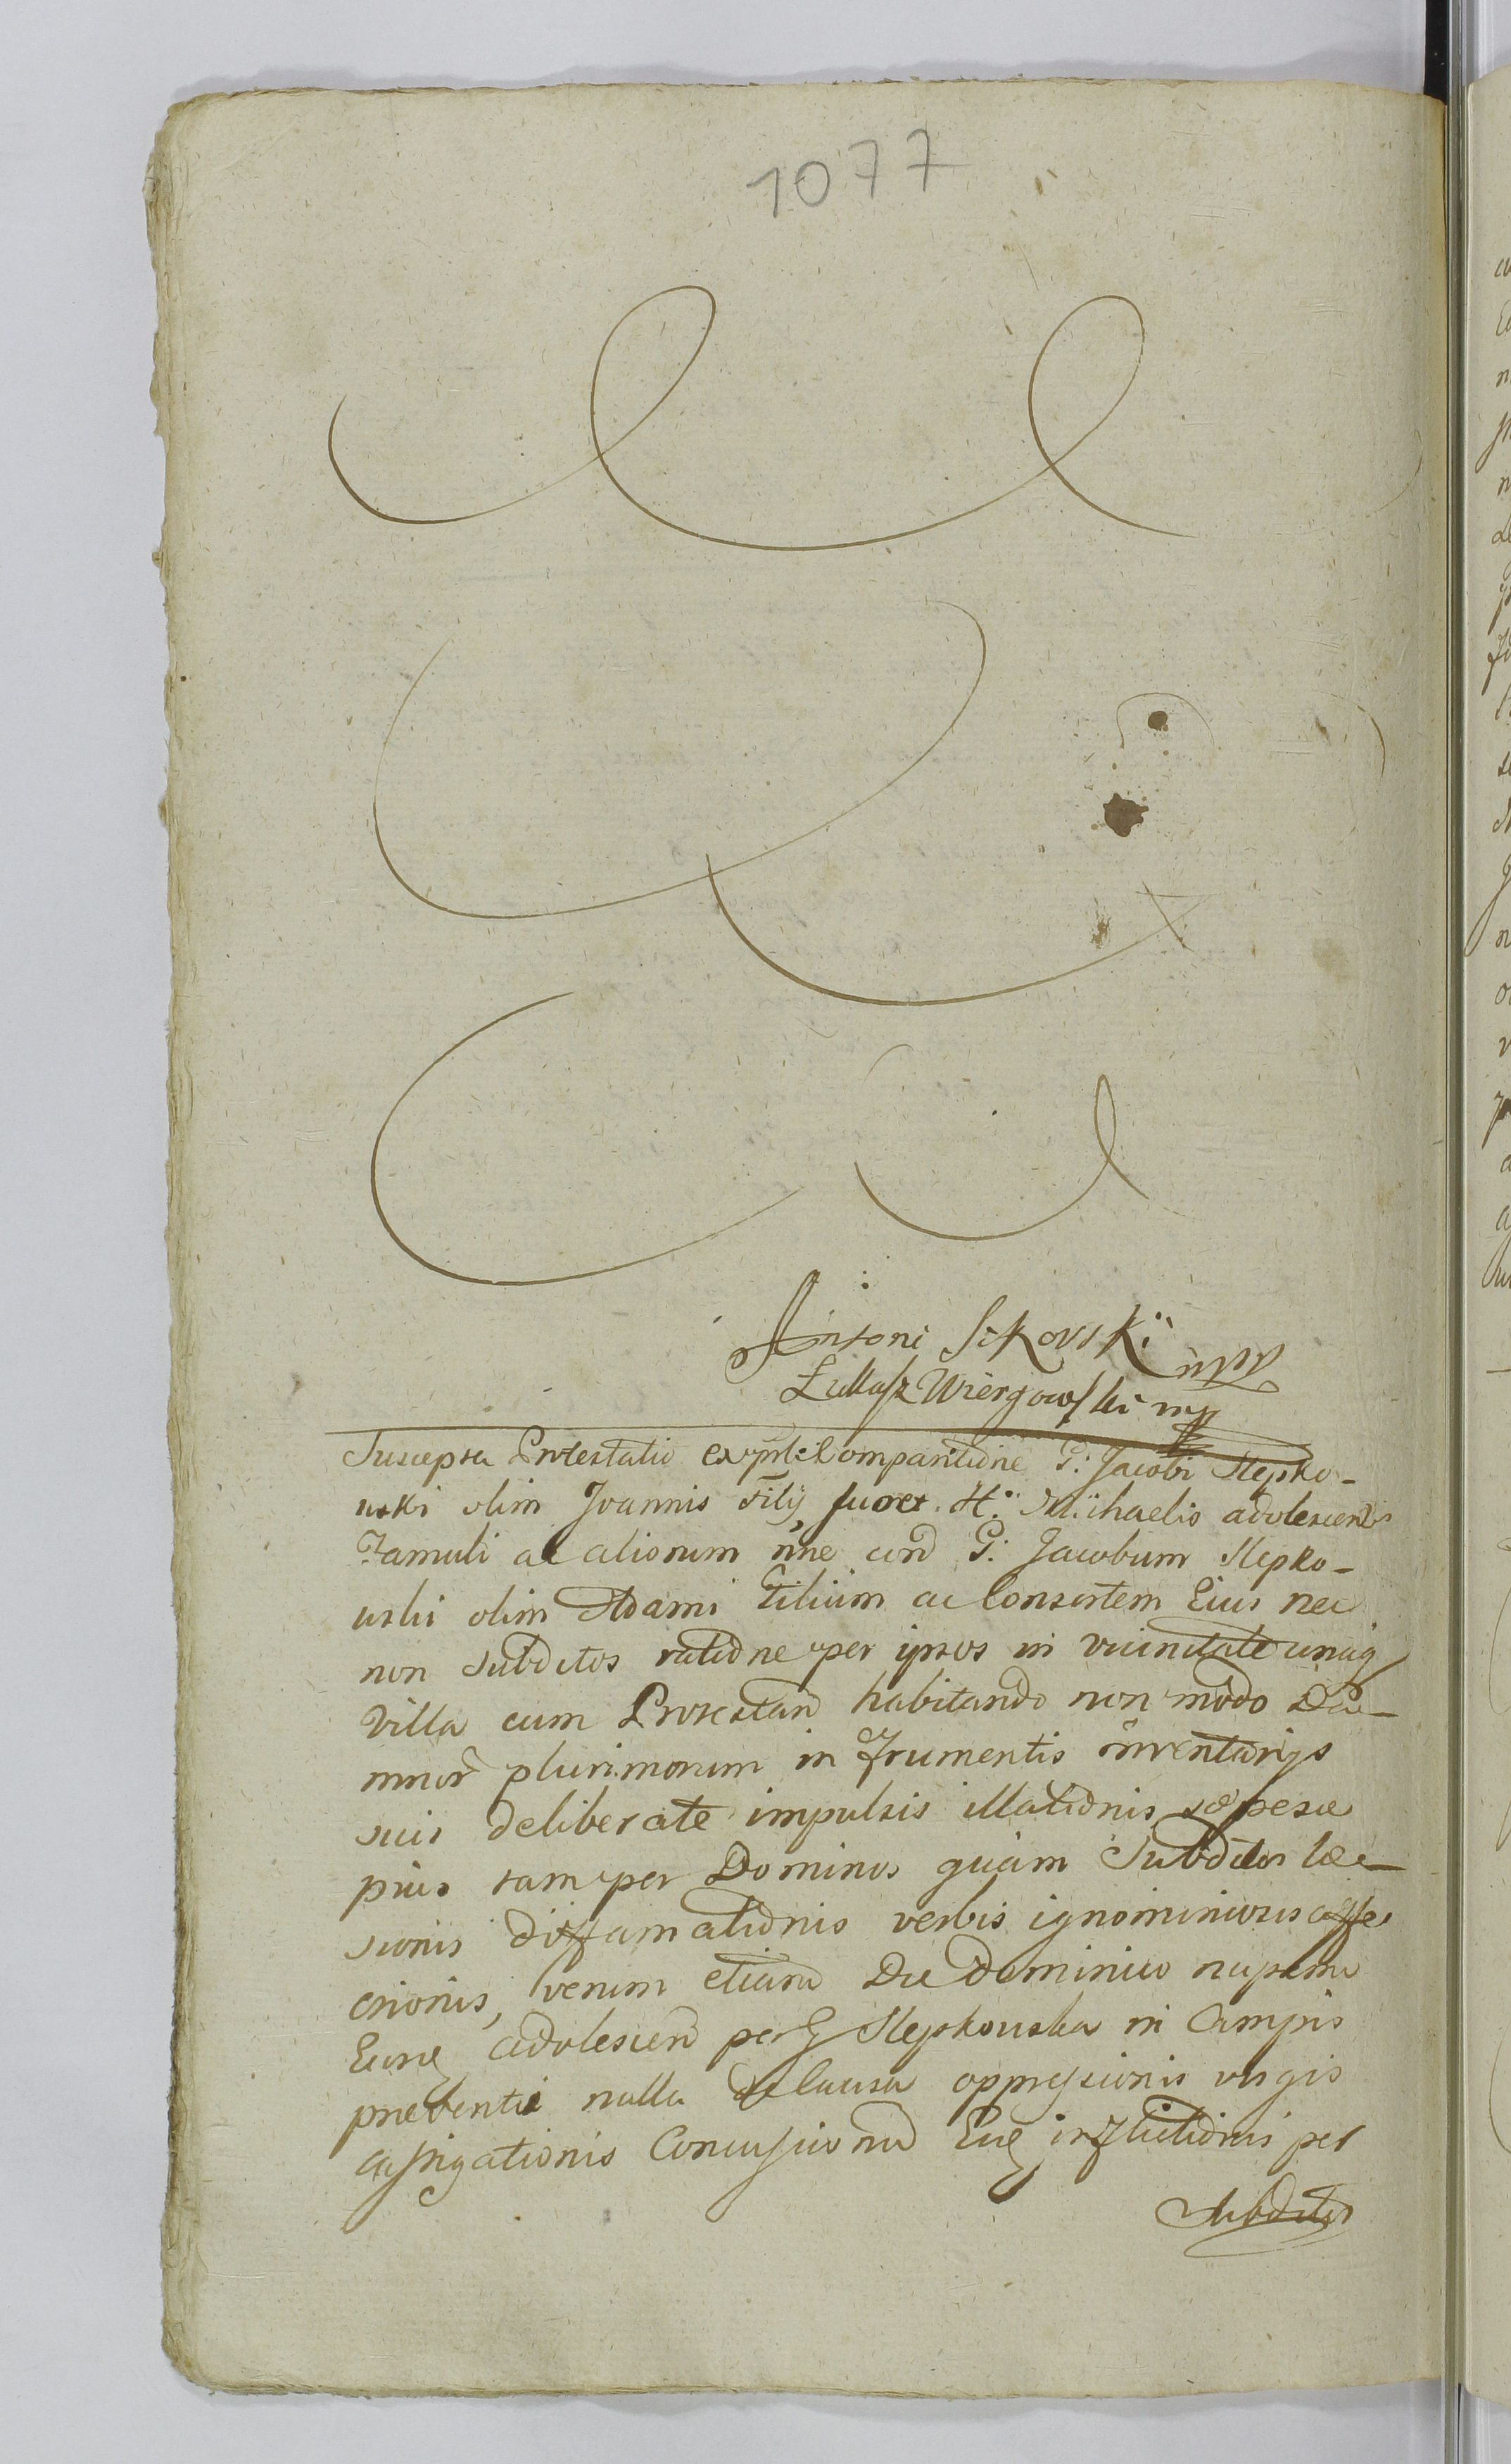 1077
Antoni Sikovskÿ mpp
Łukasz Wiergowski mp
Suscepta Protestatio ex prte Comparitione G: Jacobi Slepko-
wski olim Joannis Filij suo et H: Michaelis adolescentis
Famuli ac aliorum nne con G: Jacobum Slepko-
wski olim Adami Filium ac Consortem Eius nec
non Subditos ratione per ipsos in vicinitate unaq
Villa cum Protestan habitando non modo Da-
mnor plurimorum in frumentis inventarijs
suis deliberate impulsis illationis sæpesæ
pius tam per Dominos quam Subditos læ-
sionis diffamationis verbis ignominiosis affe
ctionis, verum etiam Die Dominico nupeme
Eune adolescen per G Slepkowska in Campis
præventi nulla de causa oppressionis virgis
castigationis Concussionu Euę inflictionis per
Subditos